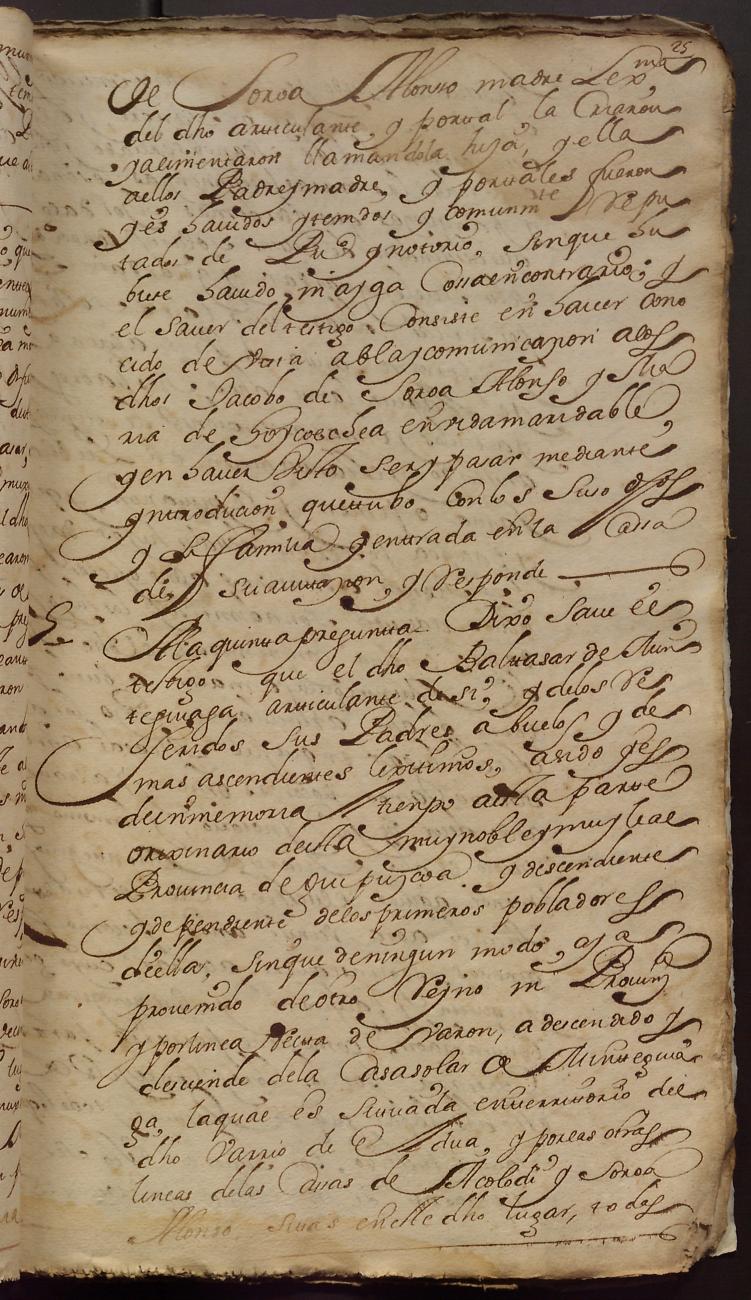 25
de Soroa Alonso madre Lexma
del dho articulante, y por tal, la Criaron
y alimentaron llamandola hija, y ella
aellos Padre y madre, y por tales fueron
y es havidos y tenidos y comunmte Repu
tados de Puco y notorio, sin que hu
biese havido, ni ayga Cosa en contrario; y
el saver del testigo Consiste en haver cono
cido de Vista abla y comunicazion alos
dhos Jacobo de Soroa Alonso y Ma
ria de hoycoechea en vida maridable,
y en haver Visto ser y pasar mediante
yntroducion que tubo Con los suso dhos
y su Familia y entrada en la Cassa
de su avitazion, y Responde
5
A la quinta pregunta Dixo save este
testigo que el dho Baltasar de Mun
teguiaga articulante de si, y de los Re
feridos sus Padres abuelos y de
mas ascendientes lexitimos, a sido y es
de inmemorial tienpo a esta parte
orixinario de esta muy noble y muy leal
Provincia de Guipuzcoa y descendiente
y dependiente de los primeros pobladores
de ella, sin que de ningun modo, aya
provenido de otro Reyno ni Provinz
y por linea Recta de Varon, a descendido y
desciende de la Casa solar de Munteguia
ga, la qual es situada en territorio del
dho Varrio de Aldua, y por las otras
lineas de las Casas de Acolodi y Soroa
Alonso sitas en el dho lugar, todos